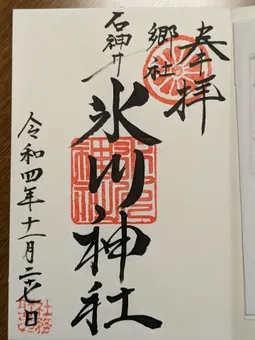 奉拝
郷社
石神井
氷川神社
令和四年十一月二七日
社務所